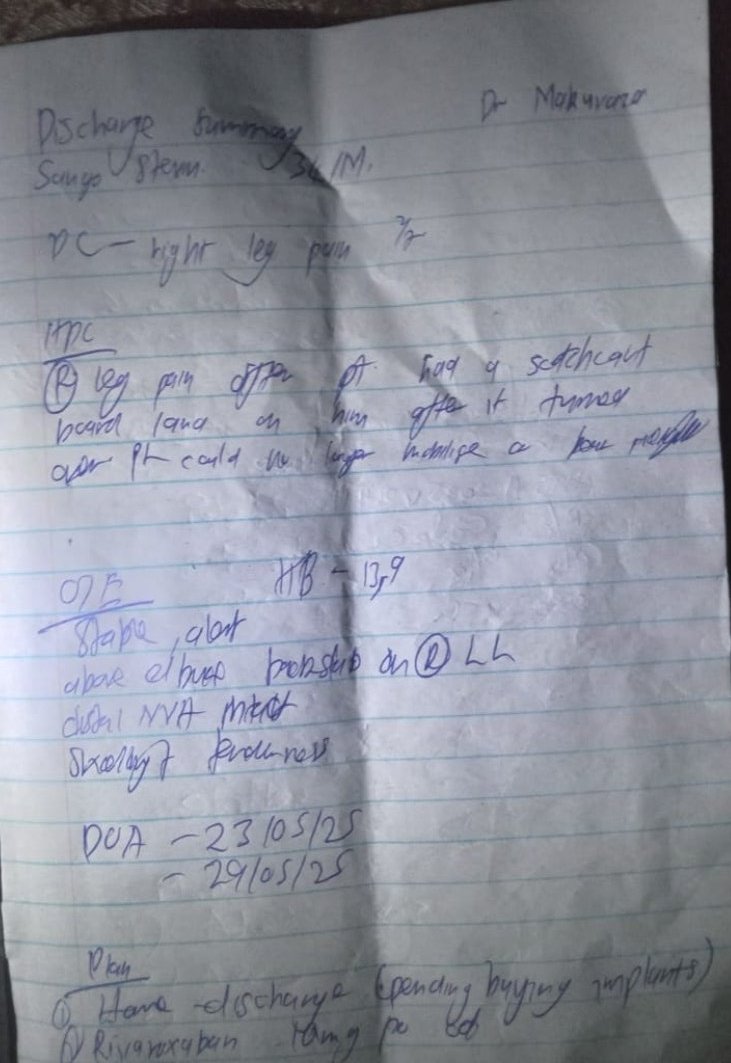 Dr Makuvaza
Discharge Summary
Sango 36/M.
PC - right leg pain
HPC
Ⓡ leg pain after pt had a scotchcart
board land on him after it turned
over Pt could no longer mobilise
O/E HB - 13,9
Stable, alert
above elbow backslab on Ⓡ LL
distal NVA intact
Swelling + tenderness
DOA - 23/05/25
- 29/05/25
Plan
① Home discharge (pending buying implants)
② Rivaroxaban 10mg po